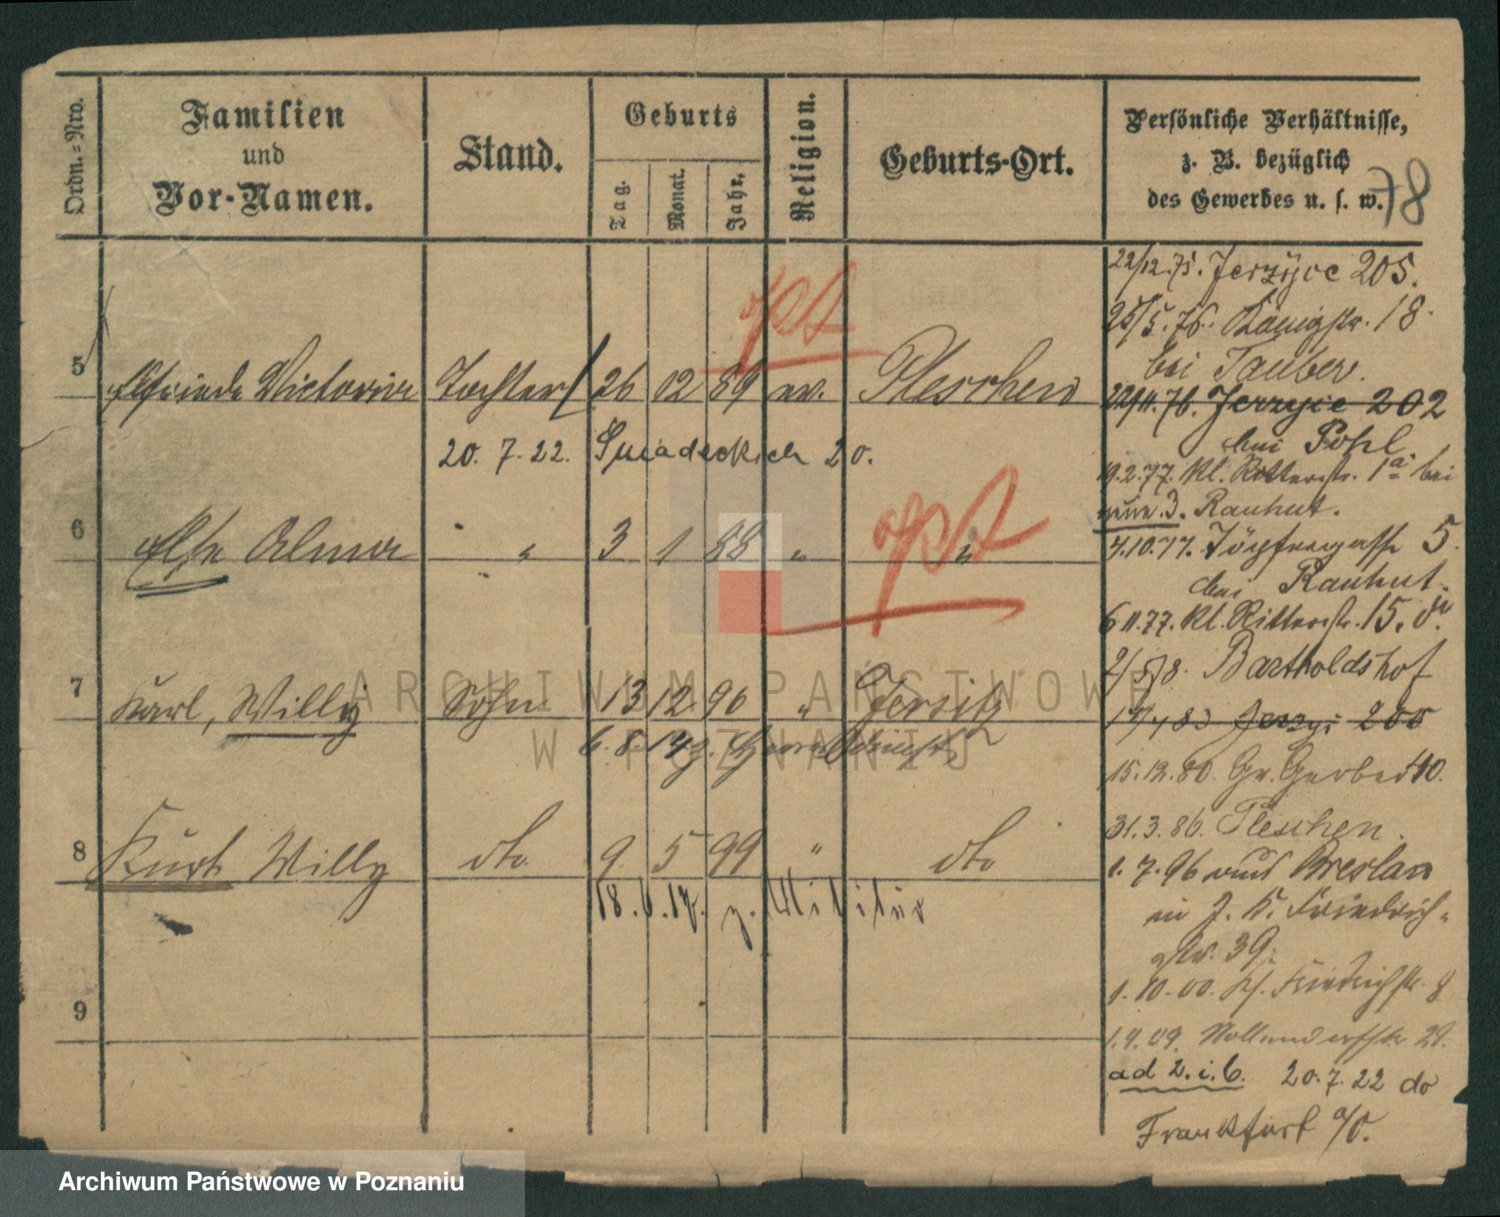 Ordn.-Nro.
Familien
und
Vor-Namen.
Stand.
Geburts
Tag.
Monat.
Jahr.
Religion.
Geburts-Ort.
Persönliche Verhältnisse,
z. B. bezüglich
des Gewerbes u. s. w.
78
opt
5 Elfriede Victoria Tochter 26 12 89 ev. Pleschen
20. 7. 22. Sniadeckich 20.
opt
6 Else Alma " 3 1 88 " "
7 Karl, Willy Sohn 13 12 90 " Jersitz
6. 8. 14 z.
8 Kurt Willy dto 9 5 99 " dto
18. 6. 17. z. Militär
9
22/12.75. Jerzyce 205.
25/5.76. Königstr. 18.
bei Tauber.
22/11.76. Jerzyce 202
bei Pohl
19.2.77. Kl. Ritterstr. 1a bei
Rauhut.
4.10.77. Töpfergasse 5.
bei Rauhut.
6 11.77. Kl. Ritterstr. 15.
2/5 78. Bartholdshof
15.12.80. Gr. Gerberstr 40.
31.3.86. Pleschen.
1. 7. 96 aus Breslau
in J. K. Friedrich-
str. 39.
1.10.00. Friedrichstr. 8
1.4.09. Nollendorfstr 29.
ad 2. i. 6. 20.7.22 do
Frankfurt a/O.
ARCHIWUM PAŃSTWOWE
W POZNANIU
Archiwum Państwowe w Poznaniu